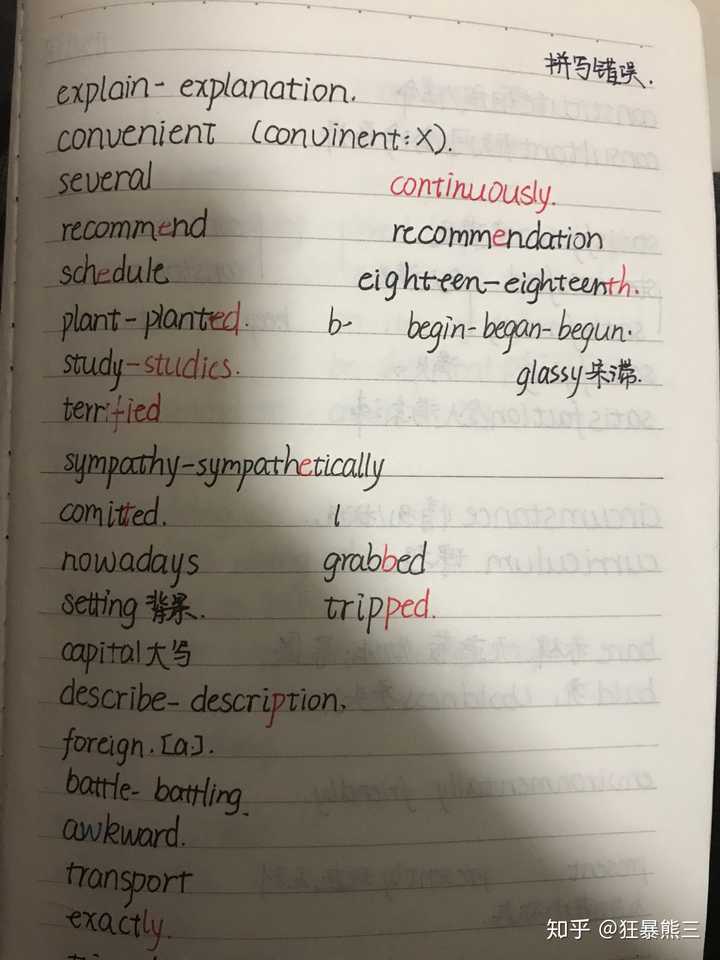 拼写错误.
explain - explanation.
convenient (convinent: X).
several continuously.
recommend recommendation
schedule eighteen-eighteenth.
plant-planted. b- begin-began-begun.
study-studies. glassy 呆滞.
terrified
sympathy-sympathetically
comitted. l
nowadays grabbed
setting 背景. tripped.
capital 大写
describe- description.
foreign. [a.].
battle- battling.
awkward.
transport
exactly.
知乎 @狂暴熊三